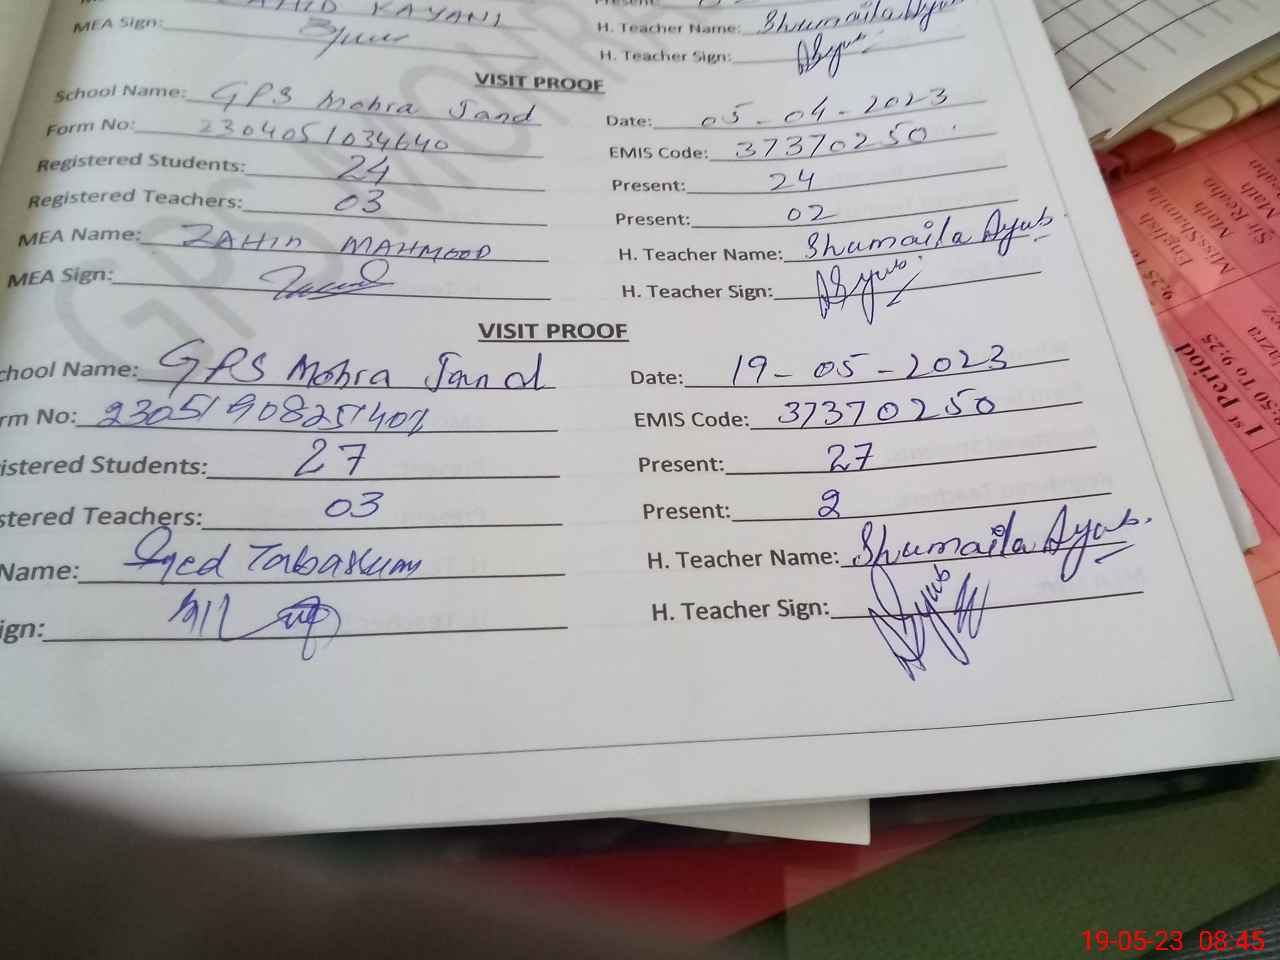 KAYANI
MEA Sign: H. Teacher Name: Shumaila Ayub
H. Teacher Sign: Ayub
VISIT PROOF
School Name: GPS Mohra Jand Date: 05-04-2023
Form No: 2304051034640 EMIS Code: 37370250
Registered Students: 24 Present: 24
Registered Teachers: 03 Present: 02
MEA Name: ZAHID MAHMOOD H. Teacher Name: Shumaila Ayub
MEA Sign: H. Teacher Sign: Ayub
VISIT PROOF
chool Name: GPS Mohra Jand Date: 19-05-2023
rm No: EMIS Code: 37370250
istered Students: 27 Present: 27
stered Teachers: 03 Present: 2
Name: Syed Tabassum H. Teacher Name: Shumaila Ayub
ign: H. Teacher Sign: Ayub
GPS MOHR
1st Period
8:50 To 9:25
English
Miss Shamila
Math
19-05-23 08:45